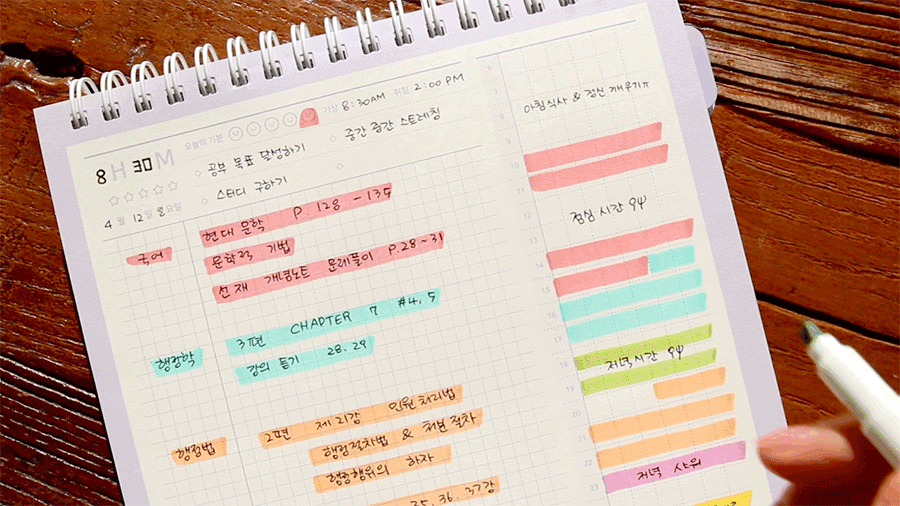 오늘의 기분 기상 8:30AM 취침 2:00PM
8 H 30 M
공부 목표 달성하기 중간 중간 스트레칭
스터디 구하기
4월 12일 월요일
국어 현대 문학 P.128 -135
문학적 기법
선재 개념노트 문제풀이 P.28~31
행정학 3편 CHAPTER 7 #4,5
강의 듣기 28.29
행정법 2편 제2강
행정절차법 & 처분절차
행정행위의 하자
35.36.37강
아침식사 & 정신 깨우기ㅠ
9
10
11
점심 시간
13
14
15
16
18 저녁시간
19
20
21
22
저녁 샤워
23